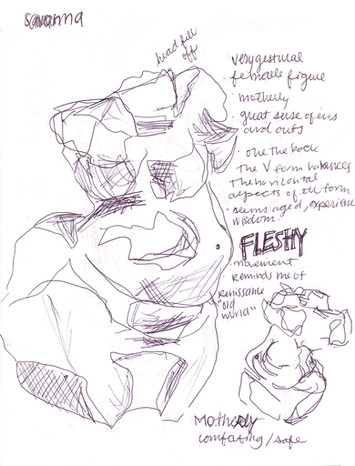 savanna
head fell
off
· very gestural
· female figure
· motherly
· great sense of ins
and outs
· on the back
The V form balances
The horizontal
aspects of the form
· seems aged, experience
wisdom.
FLESHY
movement
Reminds me of
Renissance
"old
world"
Motherly
comforting/safe